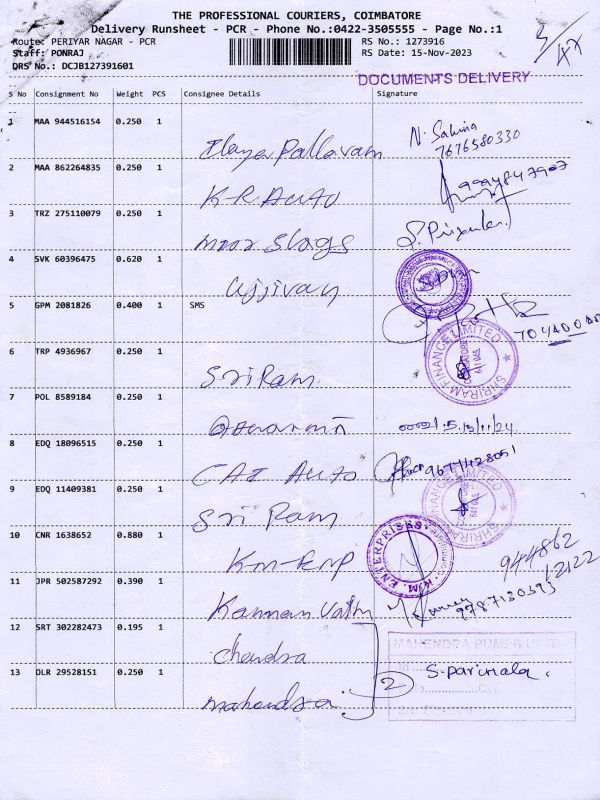 THE PROFESSIONAL COURIERS, COIMBATORE
Delivery Runsheet - PCR - Phone No.:0422-3505555 - Page No.:1
Route: PERIYAR NAGAR - PCR RS No.: 1273916
Staff: PONRAJ RS Date: 15-Nov-2023
DRS No.: DCJB127391601
DOCUMENTS DELIVERY
S No Consignment No Weight PCS Consignee Details Signature
1 MAA 944516154 0.250 1
N. Sabina
7676580330
2 MAA 862264835 0.250 1
K R Auto 9994847907
3 TRZ 275110079 0.250 1
4 SVK 60396475 0.620 1
Ujjivan
5 GPM 2081826 0.400 1 SMS
6 TRP 4936967 0.250 1
SriRam
SHRIRAM FINANCE LIMITED
COIMBATORE
641 045
7 POL 8589184 0.250 1
8 EDQ 18096515 0.250 1
CAI Auto
9 EDQ 11409381 0.250 1
Sri Ram
SHRIRAM FINANCE LIMITED
10 CNR 1638652 0.880 1
K.M. ENTERPRISES
944862
12122
11 JPR 502587292 0.390 1
9787130393
12 SRT 302282473 0.195 1
Chendra
MAHENDRA PUMPS
13 DLR 29528151 0.250 1
Mahendra 2 S. Parimala.